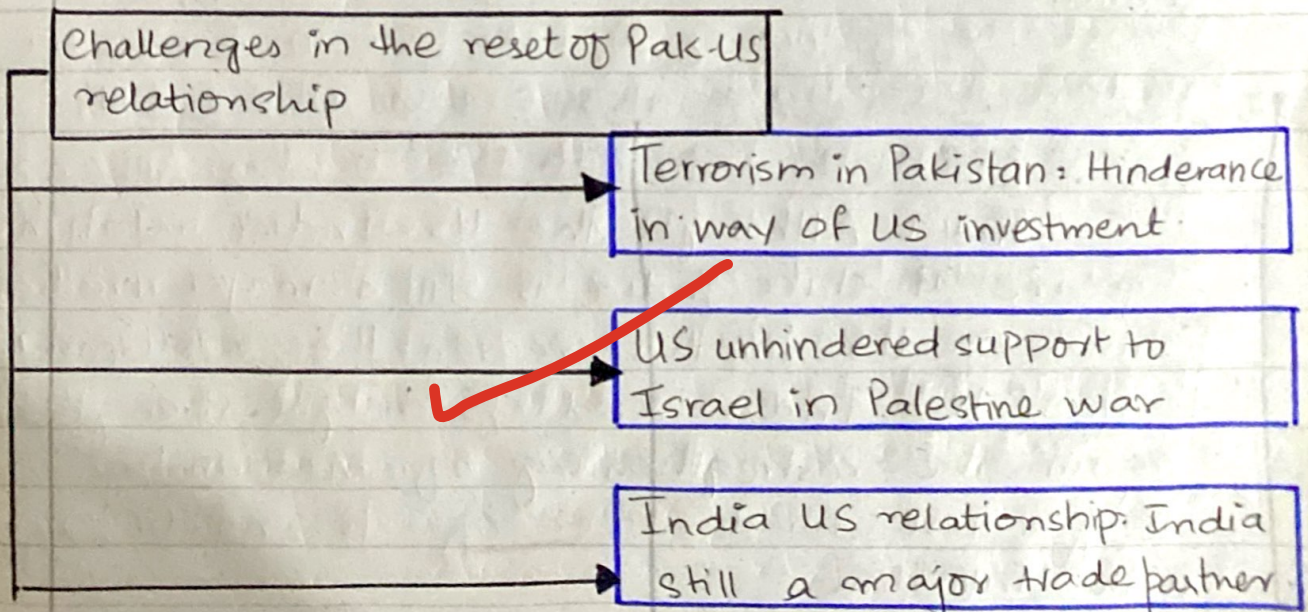 Challenges in the reset of Pak-US
relationship
Terrorism in Pakistan: Hinderance
in way of US investment.
US unhindered support to
Israel in Palestine war
India US relationship: India
still a major trade partner.